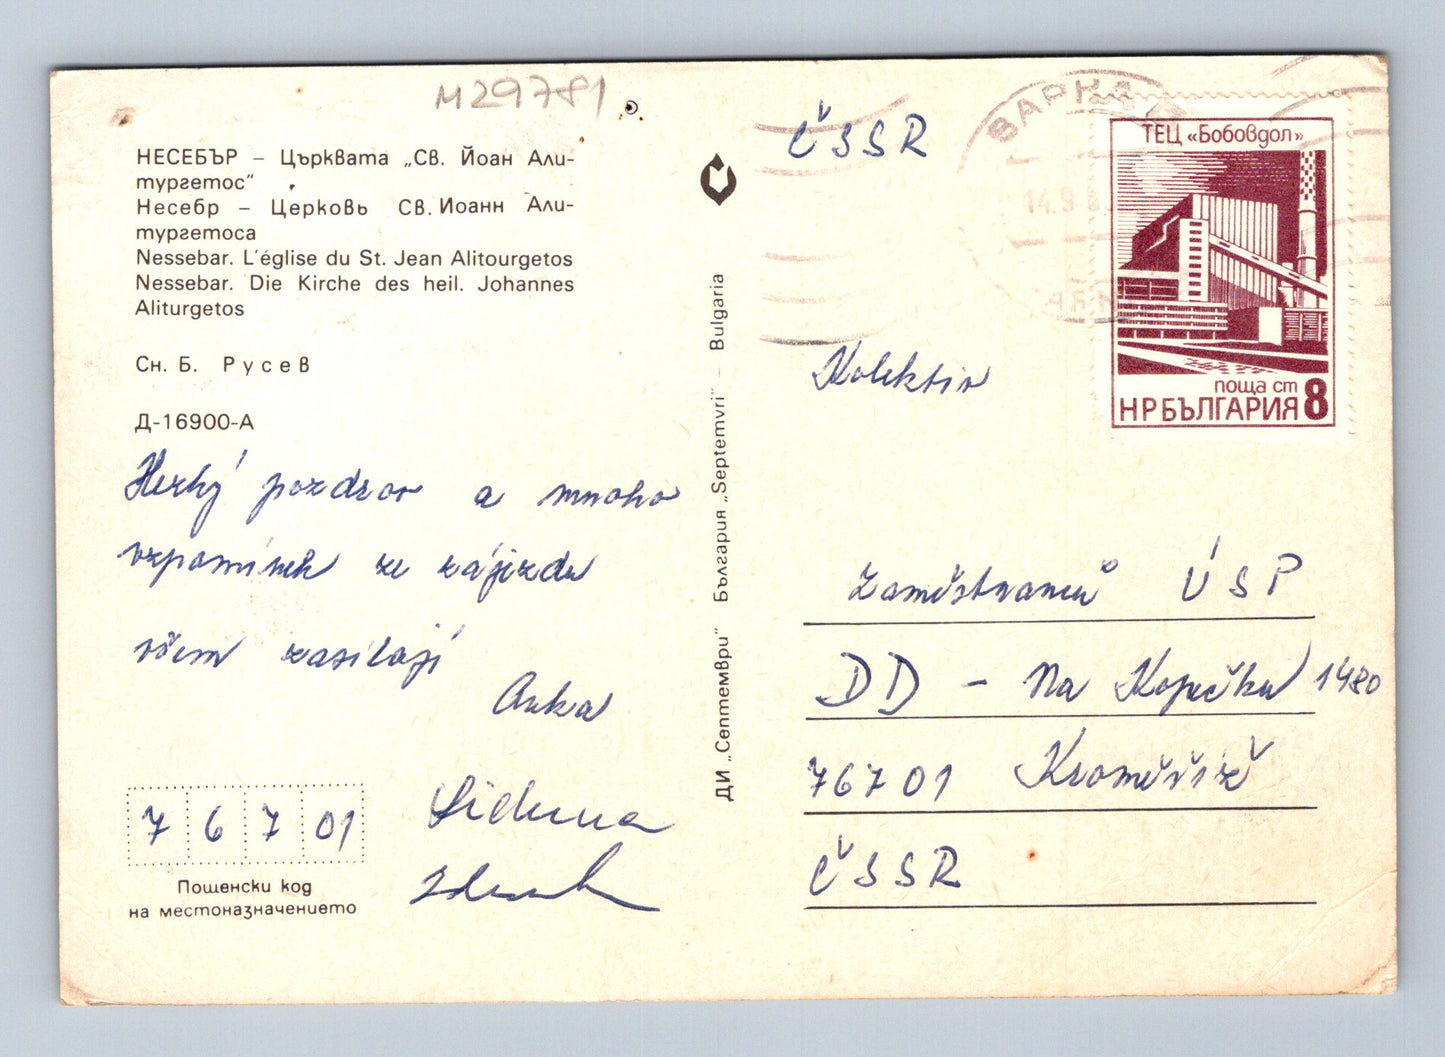 М29781
НЕСЕБЪР – Църквата „Св. Йоан Али-
тургетос"
Несебр – Церковь Св. Иоанн Али-
тургетоса
Nessebar. L'église du St. Jean Alitourgetos
Nessebar. Die Kirche des heil. Johannes
Aliturgetos
Сн. Б. Русев
Д-16900-А
Hezký pozdrav a mnoho
vzpomínek ze zájezdu
všem zasílají
Anka
Zdenek
76701
Пощенски код
на местоназначението
ДИ „Септември" България „Septemvri" – Bulgaria
ČSSR
ВАРНА
14.9.8
ТЕЦ «Бобовдол»
поща ст 8
НР БЪЛГАРИЯ
Kolektiv
Zaměstnanců ÚSP
DD – Na Kopečku 1480
76701 Kroměříž
ČSSR